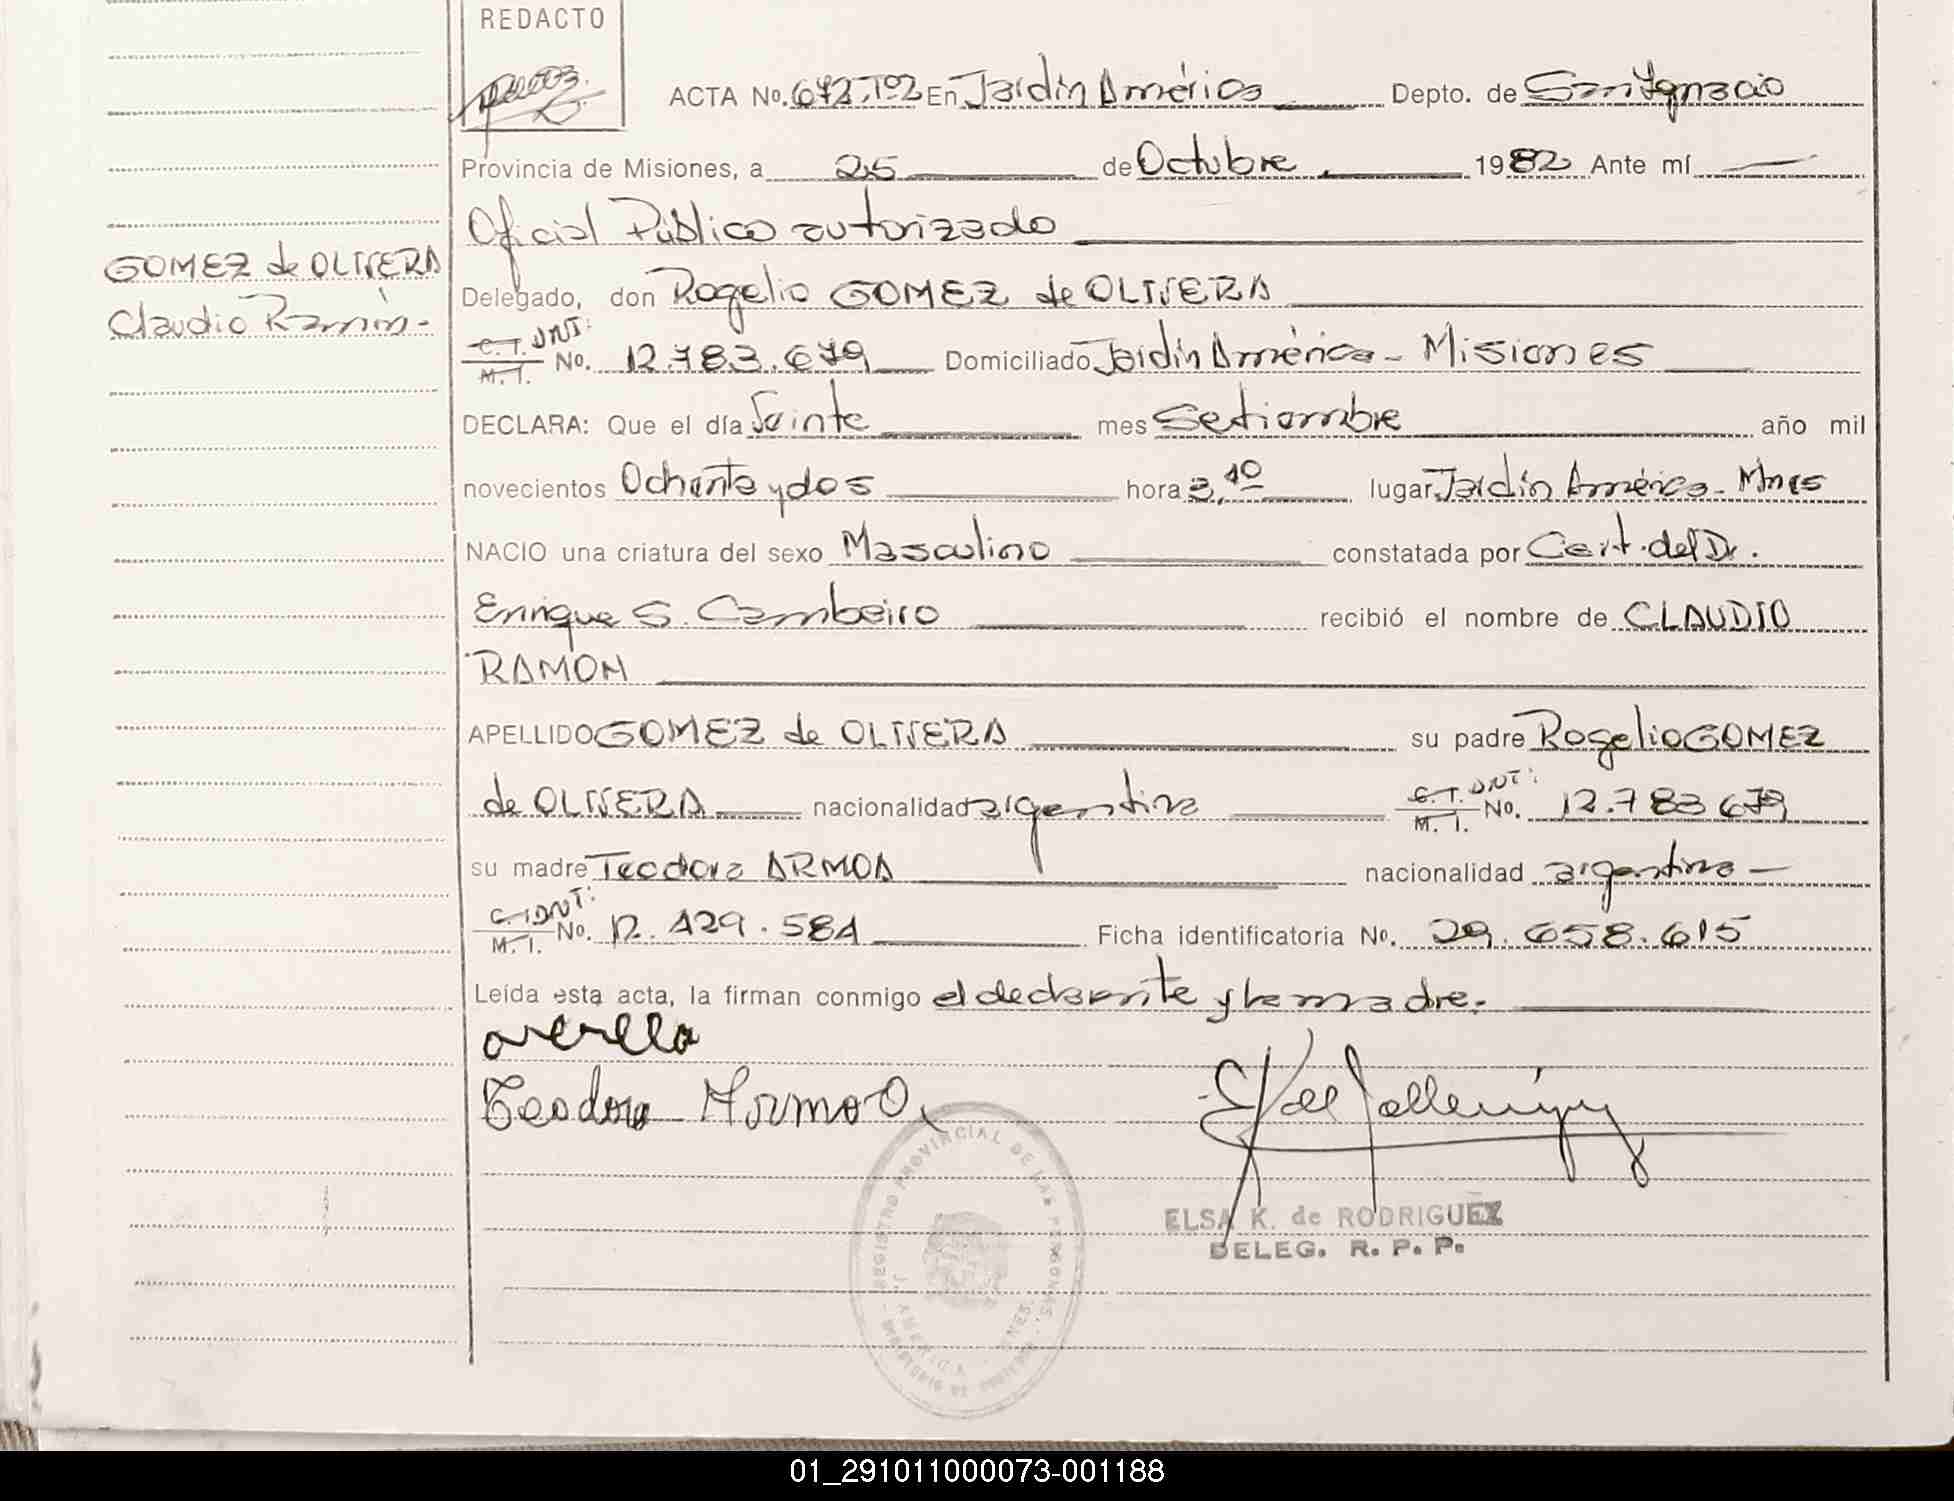 REDACTO
ACTA No. 672.Tº2 En Jardín América Depto. de San Ignacio
Provincia de Misiones, a 25 de Octubre 1982 Ante mí
Oficial Público autorizado
GOMEZ de OLIVERA
Claudio Ramón.-
Delegado, don Rogelio GOMEZ de OLIVERA
C. I. DNI: M. I. No. 12.783.679 Domiciliado Jardín América - Misiones
DECLARA: Que el día Veinte mes Setiembre año mil
novecientos Ochenta y dos hora 3,10 lugar Jardín América - Mnes
NACIO una criatura del sexo Masculino constatada por Cert. del Dr.
Enrique S. Cambeiro recibió el nombre de CLAUDIO
RAMON
APELLIDO GOMEZ de OLIVERA su padre Rogelio GOMEZ
de OLIVERA nacionalidad argentina C. I. DNI: M. I. No. 12.783679
su madre Teodora ARMOA nacionalidad argentina -
C. I. DNI: M. I. No. 12.429.584 Ficha identificatoria No. 29.658.615
Leída esta acta, la firman conmigo el declarante y la madre.
Teodora Armoa
ELSA K. de RODRIGUEZ
DELEG. R. P. P.
REGISTRO PROVINCIAL DE LAS PERSONAS
01_291011000073-001188